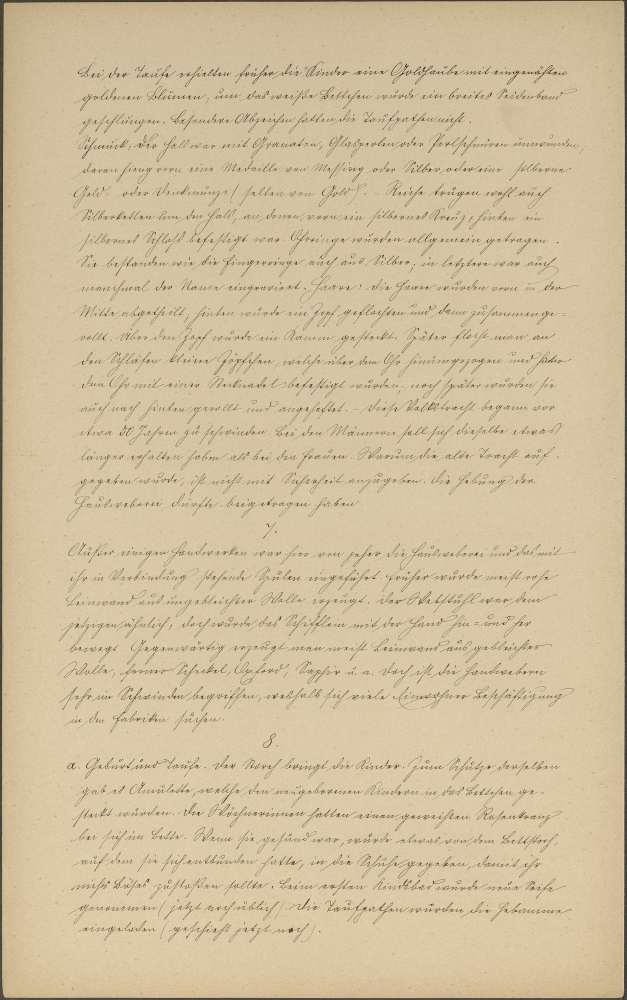 Bei der Taufe erhielten früher die Kinder eine Goldhaube mit eingenähten
goldenen Blumen, um das weiße Bettchen wurde ein breites Seidenband
geschlungen. Besondere Abzeichen hatten die Taufpathen nicht.
Schmuck, Der Hals war mit Granaten, Glasperlen oder Perlschnüren umwunden,
daran hieng vorn eine Medaille von Messing oder Silber oder eine silberne
Geld- oder Denkmünze (selten von Gold). - Reiche trugen wohl auch
Silberketten um den Hals, an denen vorn ein silbernes Kreuz, hinten ein
silbernes Schloß befestigt war. Ohrringe wurden allgemein getragen.
Sie bestanden wie die Fingerringe auch aus Silber; in letztere war auch
manchmal der Name eingraviert. Haare: die Haare wurden vorn in der
Mitte abgetheilt, hinten wurde ein Zopf geflochten und dann zusammenge-
rollt. Über den Zopf wurde ein Kamm gesteckt. Später flocht man an
den Schläfen kleine Zöpfchen, welche über das Ohr hinweggezogen und hinter
dem Ohr mit einer Stecknadel befestigt wurden; noch später wurden sie
auch nach hinten gerollt und angeheftet. - Diese Volkstracht begann vor
etwa 50 Jahren zu schwinden. Bei den Männern soll sich dieselbe etwas
länger erhalten haben als bei den Frauen. Warum die alte Tracht auf-
gegeben wurde, ist nicht mit Sicherheit anzugeben. Die Hebung der
Hausweberei dürfte beigetragen haben
7.
Außer einigen Handwerken war hier von jeher die Hausweberei und das mit
ihr in Verbindung stehende Spulen eingeführt. Früher wurde meist rohe
Leinwand aus ungebleichter Wolle erzeugt. Der Webstuhl war dem
jetzigen ähnlich, doch wurde das Schifflein mit der Hand hin- und her
bewegt. Gegenwärtig erzeugt man meist Leinwand aus gebleichter
Wolle, ferner Scheckel, Oxford, Saphir u. a. Doch ist die Handweberei
sehr im Schwinden begriffen, weshalb sich viele Einwohner Beschäftigung
in den Fabriken suchen.
8.
a. Geburt und Taufe. Der Storch bringt die Kinder. Zum Schutze derselben
gab es Amulette, welche den neugeborenen Kindern in das Bettchen ge-
steckt wurden. Die Wöchnerinnen hatten einen geweihten Rosenkranz
bei sich im Bette. Wenn sie gesund war, wurde etwas von dem Bettstroh,
auf dem sie sich entbunden hatte, in die Schuhe gegeben, damit ihr
nichts Böses zustoßen sollte. Beim ersten Kindsbad wurde neue Seife
genommen (jetzt noch üblich). Die Taufpathen wurden, die Hebamme
eingeladen (geschieht jetzt noch).